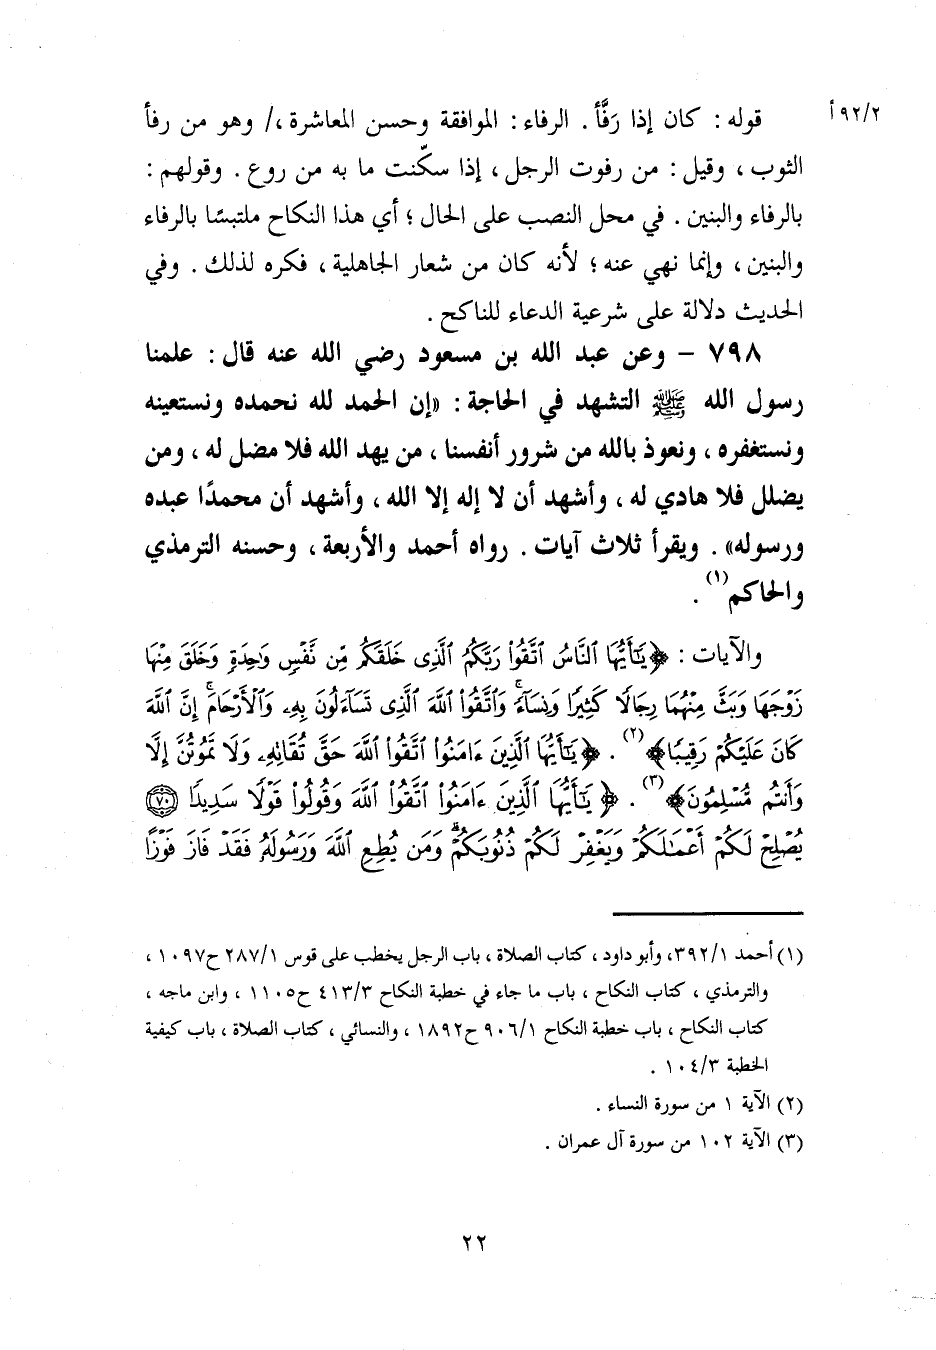 ٩٢/٢أ
قوله : كان إذا رَفَّأ . الرفاء : الموافقة وحسن المعاشرة ،/ وهو من رفأ
الثوب ، وقيل : من رفوت الرجل ، إذا سكّنت ما به من روع . وقولهم :
بالرفاء والبنين . في محل النصب على الحال ؛ أي هذا النكاح ملتبسًا بالرفاء
والبنين ، وإنما نهي عنه ؛ لأنه كان من شعار الجاهلية ، فكره لذلك . وفي
الحديث دلالة على شرعية الدعاء للناكح .
٧٩٨ – وعن عبد الله بن مسعود رضي الله عنه قال : علمنا
رسول الله ﷺ التشهد في الحاجة : «إن الحمد لله نحمده ونستعينه
ونستغفره ، ونعوذ بالله من شرور أنفسنا ، من يهد الله فلا مضل له ، ومن
يضلل فلا هادي له ، وأشهد أن لا إله إلا الله ، وأشهد أن محمدًا عبده
ورسوله» . ويقرأ ثلاث آيات . رواه أحمد والأربعة ، وحسنه الترمذي
والحاكم(١) .
والآيات : ﴿يَٰٓأَيُّهَا ٱلنَّاسُ ٱتَّقُوا۟ رَبَّكُمُ ٱلَّذِى خَلَقَكُم مِّن نَّفْسٍ وَٰحِدَةٍ وَخَلَقَ مِنْهَا
زَوْجَهَا وَبَثَّ مِنْهُمَا رِجَالًا كَثِيرًا وَنِسَآءً ۚ وَٱتَّقُوا۟ ٱللَّهَ ٱلَّذِى تَسَآءَلُونَ بِهِۦ وَٱلْأَرْحَامَ ۚ إِنَّ ٱللَّهَ
كَانَ عَلَيْكُمْ رَقِيبًا﴾(٢) . ﴿يَٰٓأَيُّهَا ٱلَّذِينَ ءَامَنُوا۟ ٱتَّقُوا۟ ٱللَّهَ حَقَّ تُقَاتِهِۦ وَلَا تَمُوتُنَّ إِلَّا
وَأَنتُم مُّسْلِمُونَ﴾(٣) . ﴿يَٰٓأَيُّهَا ٱلَّذِينَ ءَامَنُوا۟ ٱتَّقُوا۟ ٱللَّهَ وَقُولُوا۟ قَوْلًا سَدِيدًا ٧٠
يُصْلِحْ لَكُمْ أَعْمَٰلَكُمْ وَيَغْفِرْ لَكُمْ ذُنُوبَكُمْ ۗ وَمَن يُطِعِ ٱللَّهَ وَرَسُولَهُۥ فَقَدْ فَازَ فَوْزًا
(١) أحمد ٣٩٢/١، وأبو داود ، كتاب الصلاة ، باب الرجل يخطب على قوس ٢٨٧/١ ح١٠٩٧ ،
والترمذي ، كتاب النكاح ، باب ما جاء في خطبة النكاح ٤١٣/٣ ح١١٠٥ ، وابن ماجه ،
كتاب النكاح ، باب خطبة النكاح ٩٠٦/١ ح١٨٩٢ ، والنسائي ، كتاب الصلاة ، باب كيفية
الخطبة ١٠٤/٣ .
(٢) الآية ١ من سورة النساء .
(٣) الآية ١٠٢ من سورة آل عمران .
٢٢